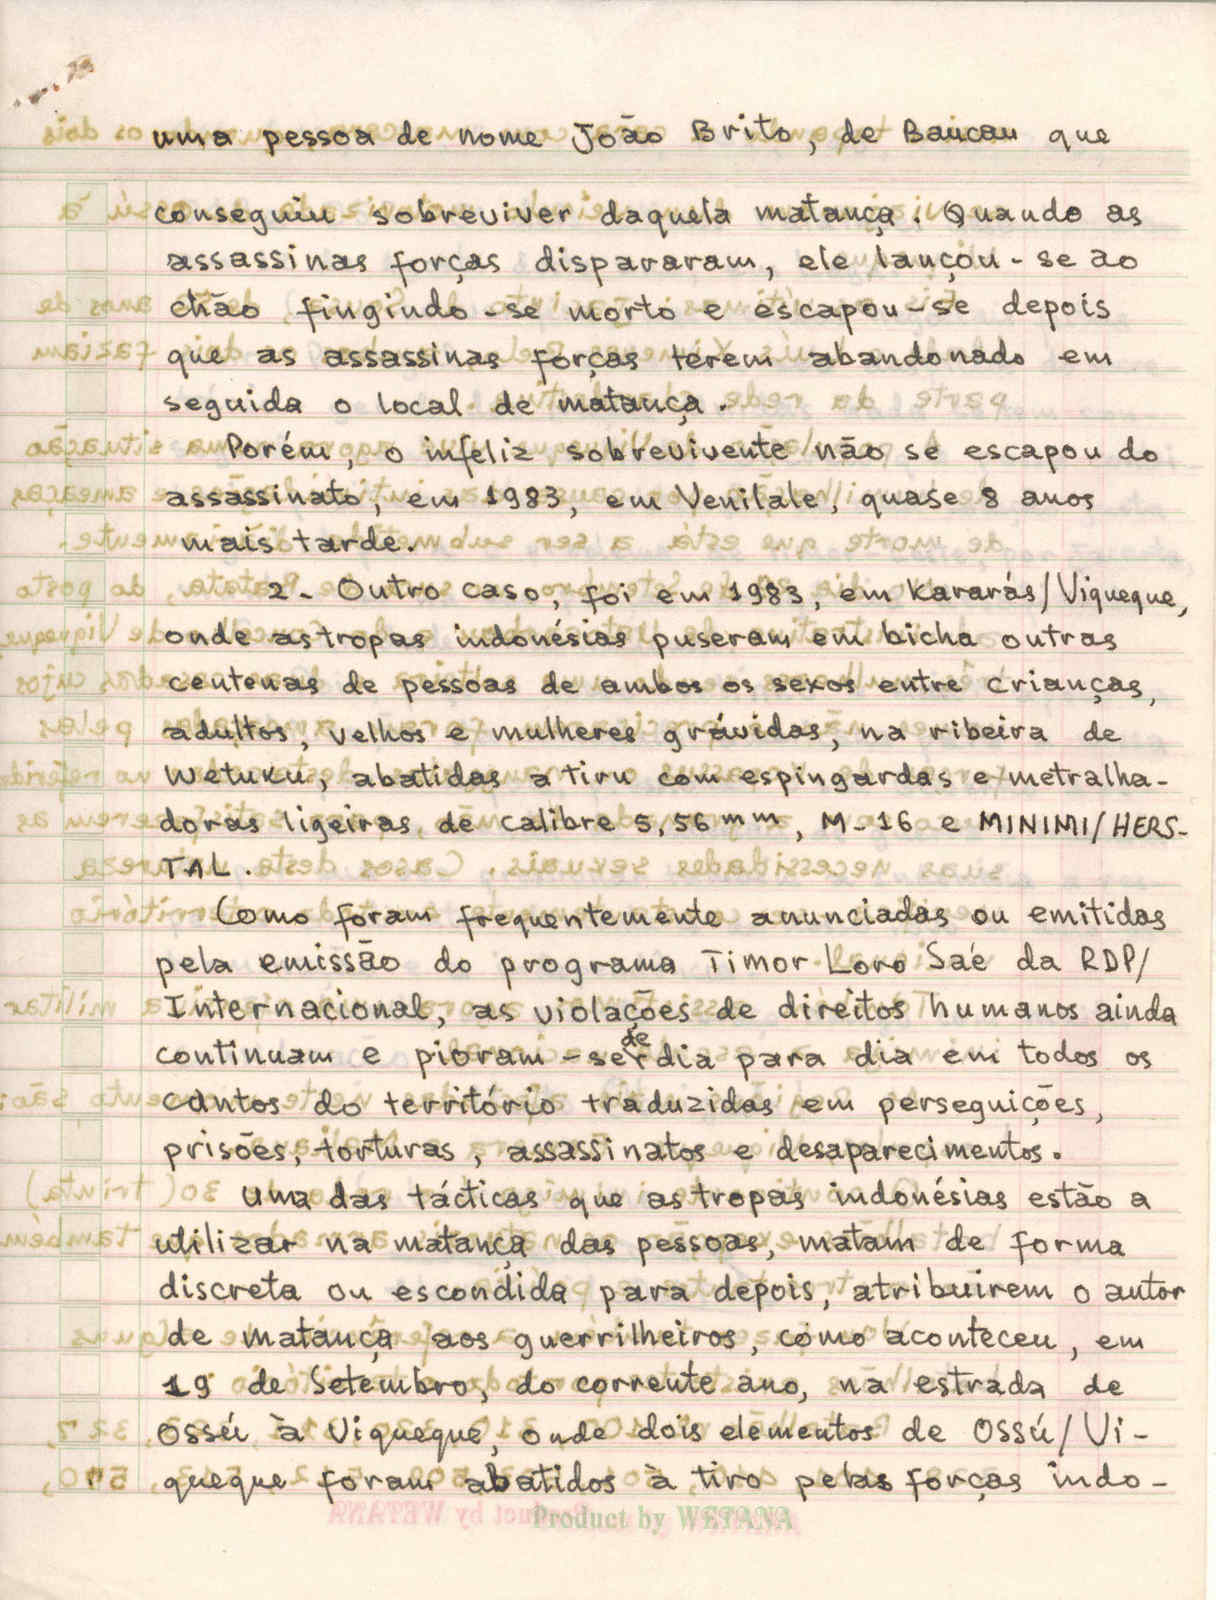 uma pessoa de nome João Brito, de Baucau que
conseguiu sobreviver daquela matança. Quando as
assassinas forças dispararam, ele lançou-se ao
chão fingindo-se morto e escapou-se depois
que as assassinas forças terem abandonado em
seguida o local de matança.
Porém, o infeliz sobrevivente não se escapou do
assassinato, em 1983, em Venilale, quase 8 anos
mais tarde.
2- Outro caso, foi em 1983, em Kararás/Viqueque,
onde as tropas indonésias puseram em bicha outras
centenas de pessoas de ambos os sexos entre crianças,
adultos, velhos e mulheres grávidas, na ribeira de
Wetuku, abatidas a tiru com espingardas e metralha-
doras ligeiras, de calibre 5,56 mm, M-16 e MINIMI/HERS-
TAL.
Como foram frequentemente anunciadas ou emitidas
pela emissão do programa Timor Loro Saé da RDP/
Internacional, as violações de direitos humanos ainda
continuam e pioram-se de dia para dia em todos os
cantos do território traduzidas em perseguições,
prisões, torturas, assassinatos e desaparecimentos.
Uma das tácticas que as tropas indonésias estão a
utilizar na matança das pessoas, matam de forma
discreta ou escondida para depois, atribuirem o autor
de matança aos guerrilheiros, como aconteceu, em
19 de Setembro, do corrente ano, na estrada de
Ossú à Viqueque, onde dois elementos de Ossú/Vi-
queque foram abatidos à tiro pelas forças indo-
Product by WETANA